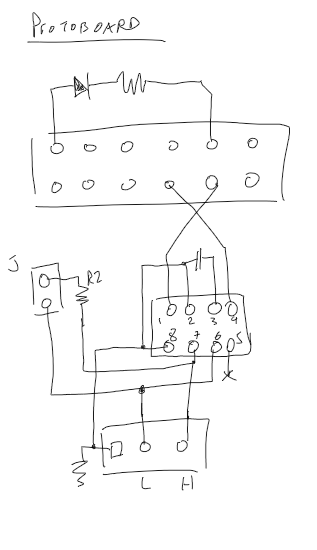 PROTOBOARD
J
R2
1 2 3 4
8 7 6 5
L H